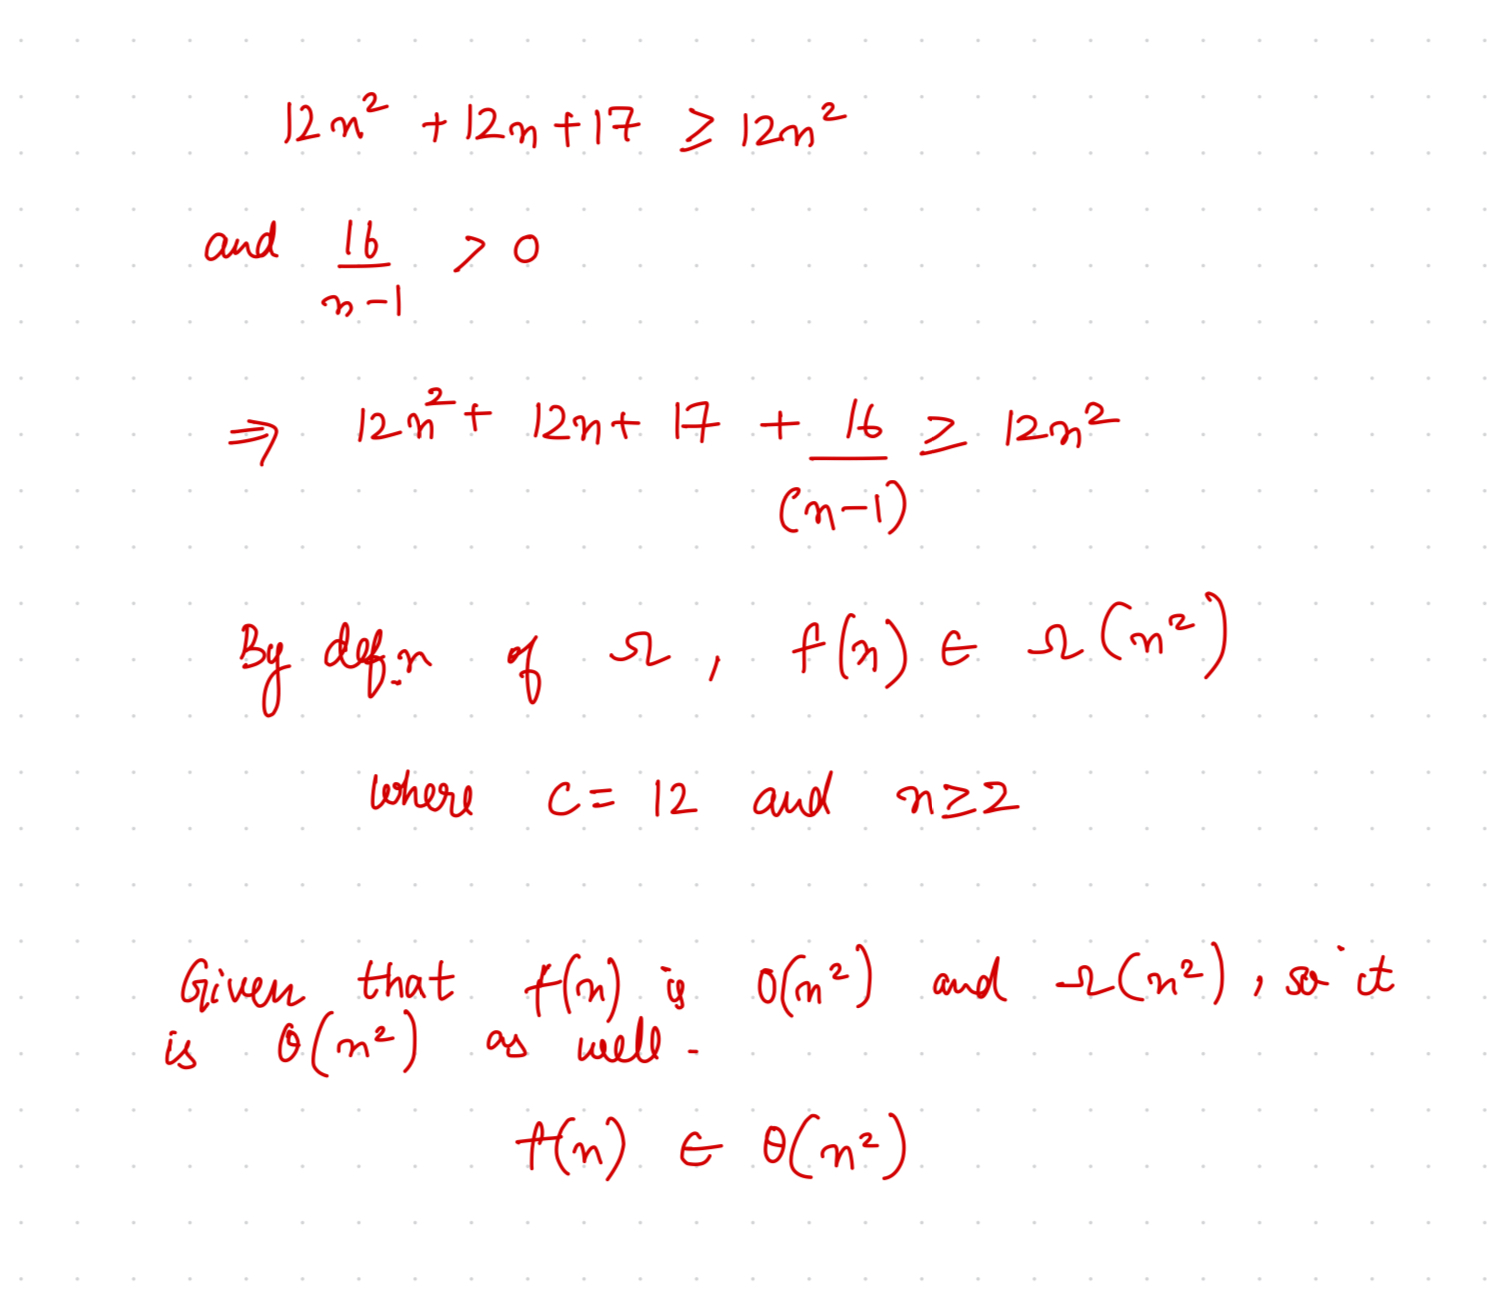 12n² + 12n + 17 ≥ 12n²
and 16/(n-1) > 0
⇒ 12n² + 12n + 17 + 16/(n-1) ≥ 12n²
By defn of Ω, f(n) ∈ Ω(n²)
where c = 12 and n ≥ 2
Given that f(n) is O(n²) and Ω(n²), so it
is Θ(n²) as well.
f(n) ∈ Θ(n²)